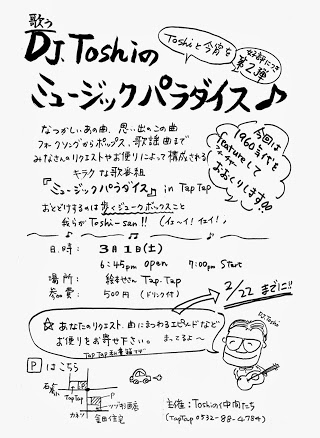 歌う
D.J.Toshiの
Toshiと今宵を
好評につき
第2弾
ミュージックパラダイス♪
なつかしいあの曲、思い出のこの曲
フォークソングからポップス、歌謡曲まで
みなさんのリクエストやお便りによって構成される
キラクな歌番組
『ミュージックパラダイス』 in Tap Tap
おとどけするのは歩くジュークボックスこと
我らが Toshi-san!! (イェ〜イ!イェイ!)
今回は
1960年代を
featureして
おおくりします
日時: 3月1日(土)
6:45pm open 7:00pm Start
場所: 絵本やさん Tap・Tap
参加費: 500円 (ドリンク付)
2/22 までに!!
☆ あなたのリクエスト、曲にまつわるエピソードなど
お便りをお寄せ下さい。 まってるよ〜
Tap Tap
D.J.Toshi
Pはこちら
P
主催:Toshiの仲間たち
(TapTap 0532-88-4784)